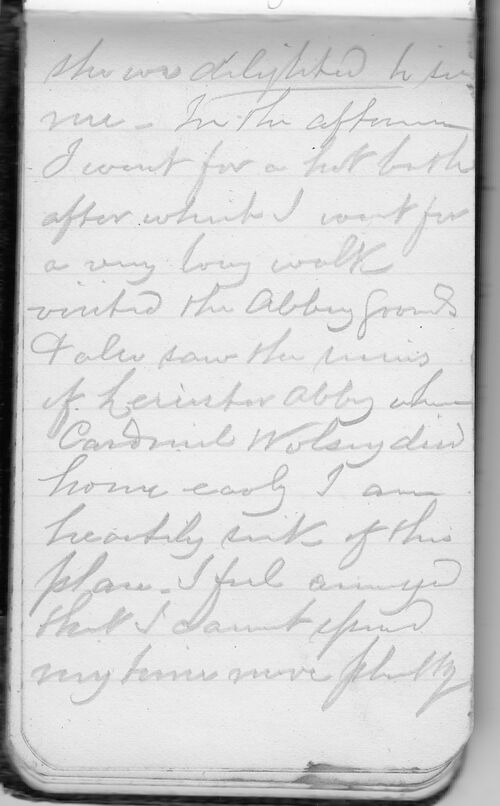 she was delighted to see
me - In the afternoon
I went for a hot bath
after which I went for
a very long walk
visited the Abbey grounds
& also saw the ruins
of Leicester Abby where
Cardinal Wolsey died
home early I am
heartily sick of this
place - I feel annoyed
that I cannot spend
my time more